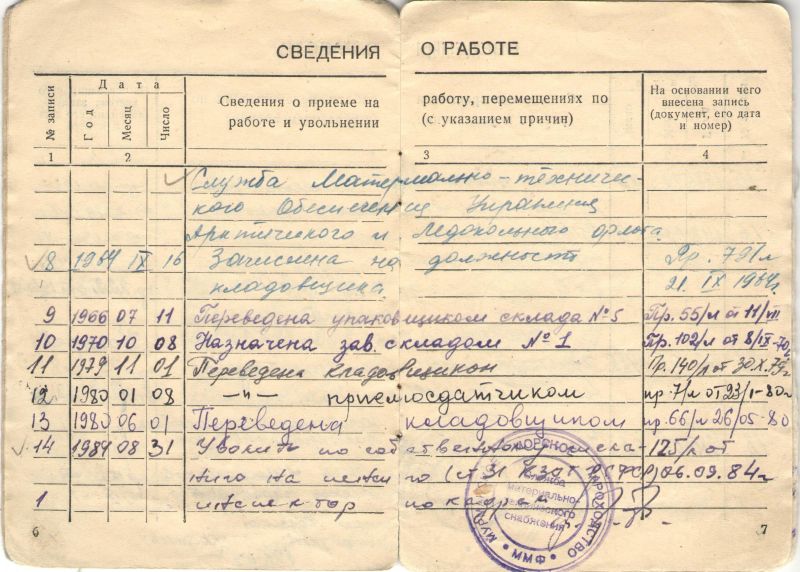 СВЕДЕНИЯ О РАБОТЕ
№ записи
Дата
Год
Месяц
Число
Сведения о приеме на работу, перемещениях по
работе и увольнении (с указанием причин)
На основании чего
внесена запись
(документ, его дата
и номер)
1 2 3 4
Служба Материально-техничес-
кого Обеспечения Управления
Арктического и Ледокольного флота
8 1964 IX 16 Зачислена на должность Пр. 791/л
кладовщика. 21. IX 1964г.
9 1966 07 11 Переведена упаковщиком склада №5 Пр. 55/л от 11/VII
10 1970 10 08 Назначена зав. складом №1 Пр. 102/л от 8/IX-70г
11 1979 11 01 Переведена кладовщиком Пр. 140/л от 30.X.79г
12 1980 01 08 —"— приемосдатчиком пр. 7/л от 23/1-80г
13 1980 06 01 Переведена кладовщиком пр. 66/л 26/05-80
14 1984 08 31 Уволить по собственному 125/л от
(ст 31 КЗоТ РСФСР) 06.09.84г
1 инспектор по кадрам
МУРМАНСКОЕ МОРСКОЕ ПАРОХОДСТВО
ММФ
Служба
материально-
технического
снабжения
6 7